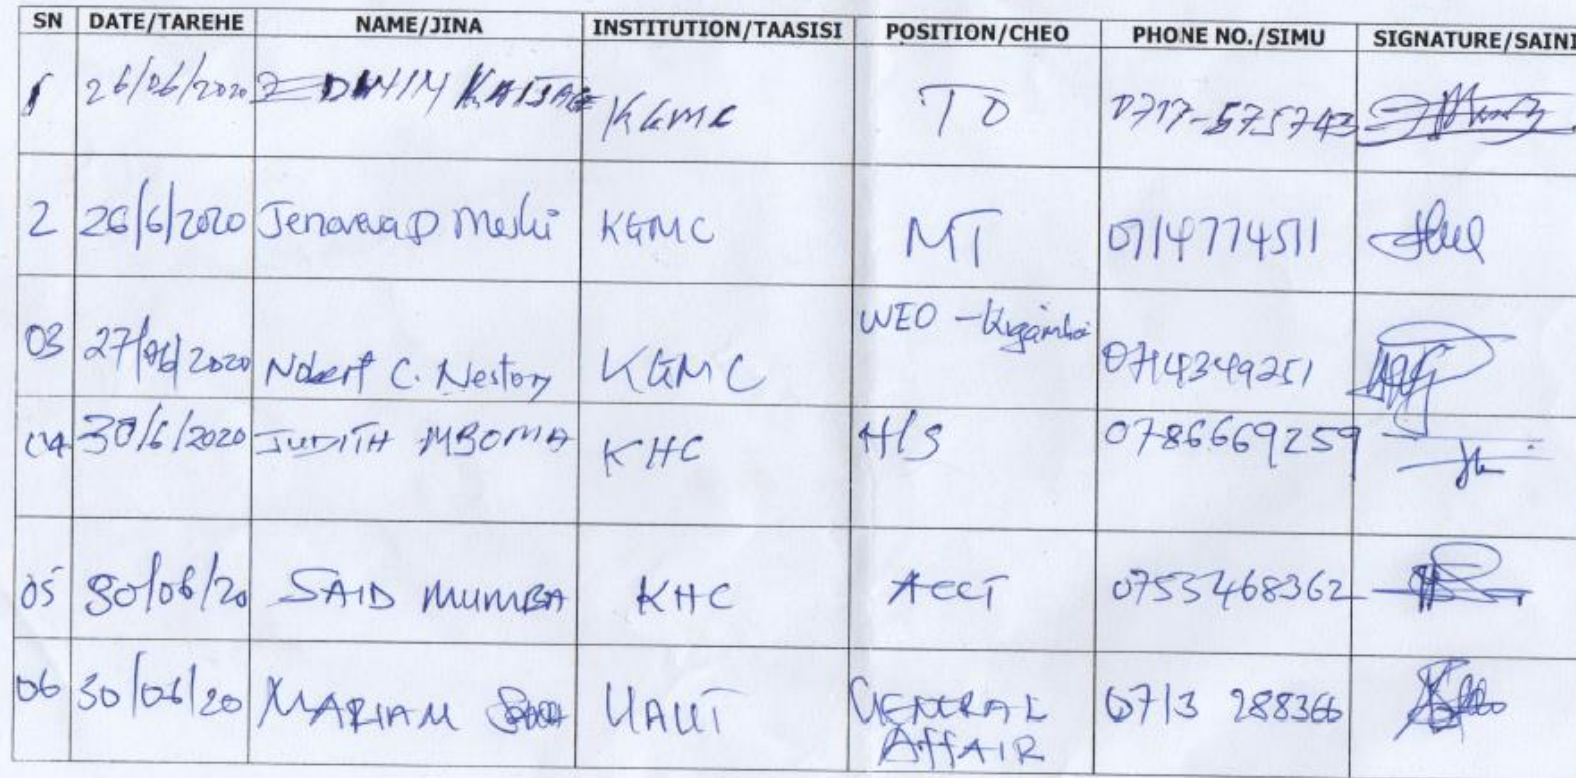 SN DATE/TAREHE NAME/JINA INSTITUTION/TAASISI POSITION/CHEO PHONE NO./SIMU SIGNATURE/SAINI
1 26/06/2020 EDWIN KAIJAGE KGMC TO 0717-575743
2 26/6/2020 D Meshi KGMC MT 0714774511
03 27/06/2020 Nobert C. Nestory KGMC WEO - Kigamboni 0714349251
04 30/6/2020 JUDITH MBOMA KHC H/S 0786669259
05 30/06/20 SAID MUMBA KHC ACCT 0753468362
06 30/06/20 MARIAM GENERAL 0713 288366
AFFAIR